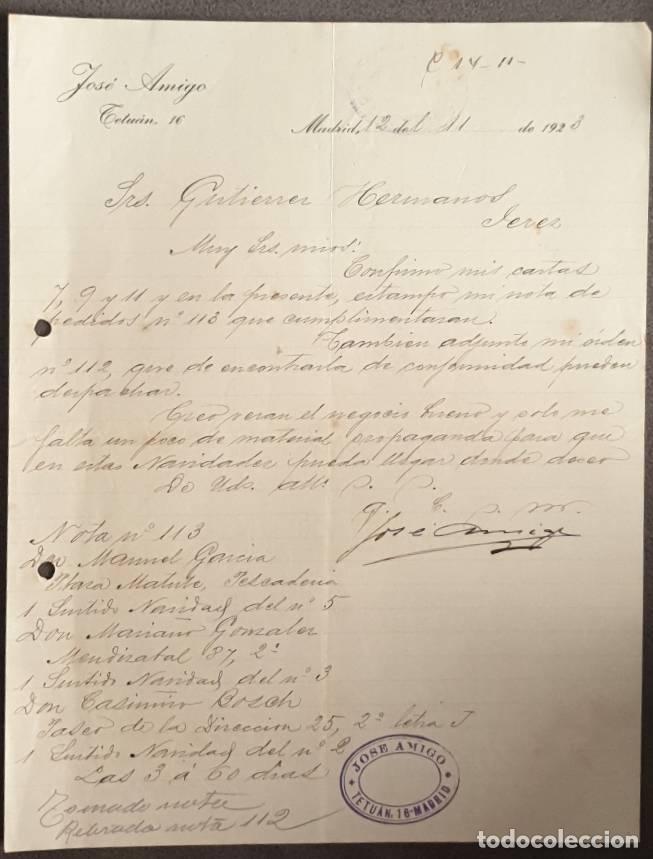 José Amigo
Tetuán, 16
14-11-
Madrid, 12 del 11 de 1923
Srs. Gutierrez Hermanos
Jerez
Muy Srs. mios:
Confirmo mis cartas
7, 9 y 11 y en la presente, estampo mi nota de
pedidos nº 113 que cumplimentaran.
Tambien adjunto mi órden
nº 112, que de encontrarla de conformidad pueden
despachar.
Creo veran el negocio bueno y solo me
falta un poco de material propaganda para que
en estas Navidades pueda llegar donde deseo
De Uds. affº. s. s.
q. e. s. m.
José Amigo
Nota nº 113
Don Manuel Garcia
Plaza Matute, Pescaderia
1 Surtido Navidad del nº 5
Don Mariano Gonzalez
Mendizabal 87, 2º
1 Surtido Navidad del nº 3
Don Casimiro Bosch
Paseo de la Direccion 25, 2º letra J
1 Surtido Navidad del nº 2
Las 3 á 60 dias
Tomado nota
nota 112
JOSE AMIGO
TETUÁN, 16-MADRID
todocoleccion